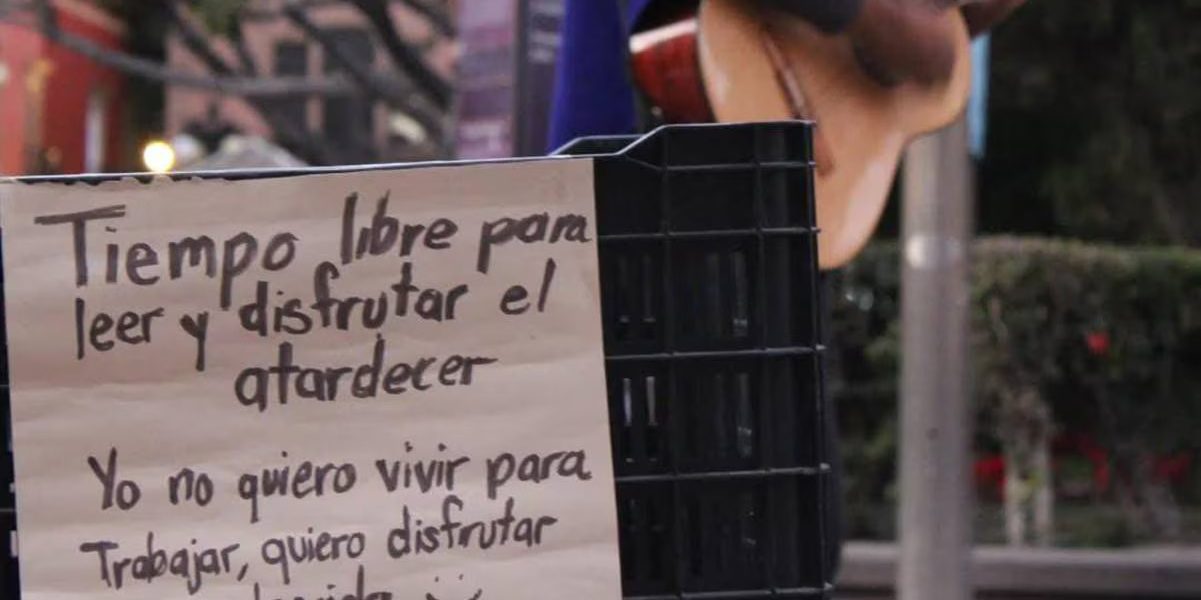 Tiempo libre para
leer y disfrutar el
atardecer
Yo no quiero vivir para
Trabajar, quiero disfrutar
la vida